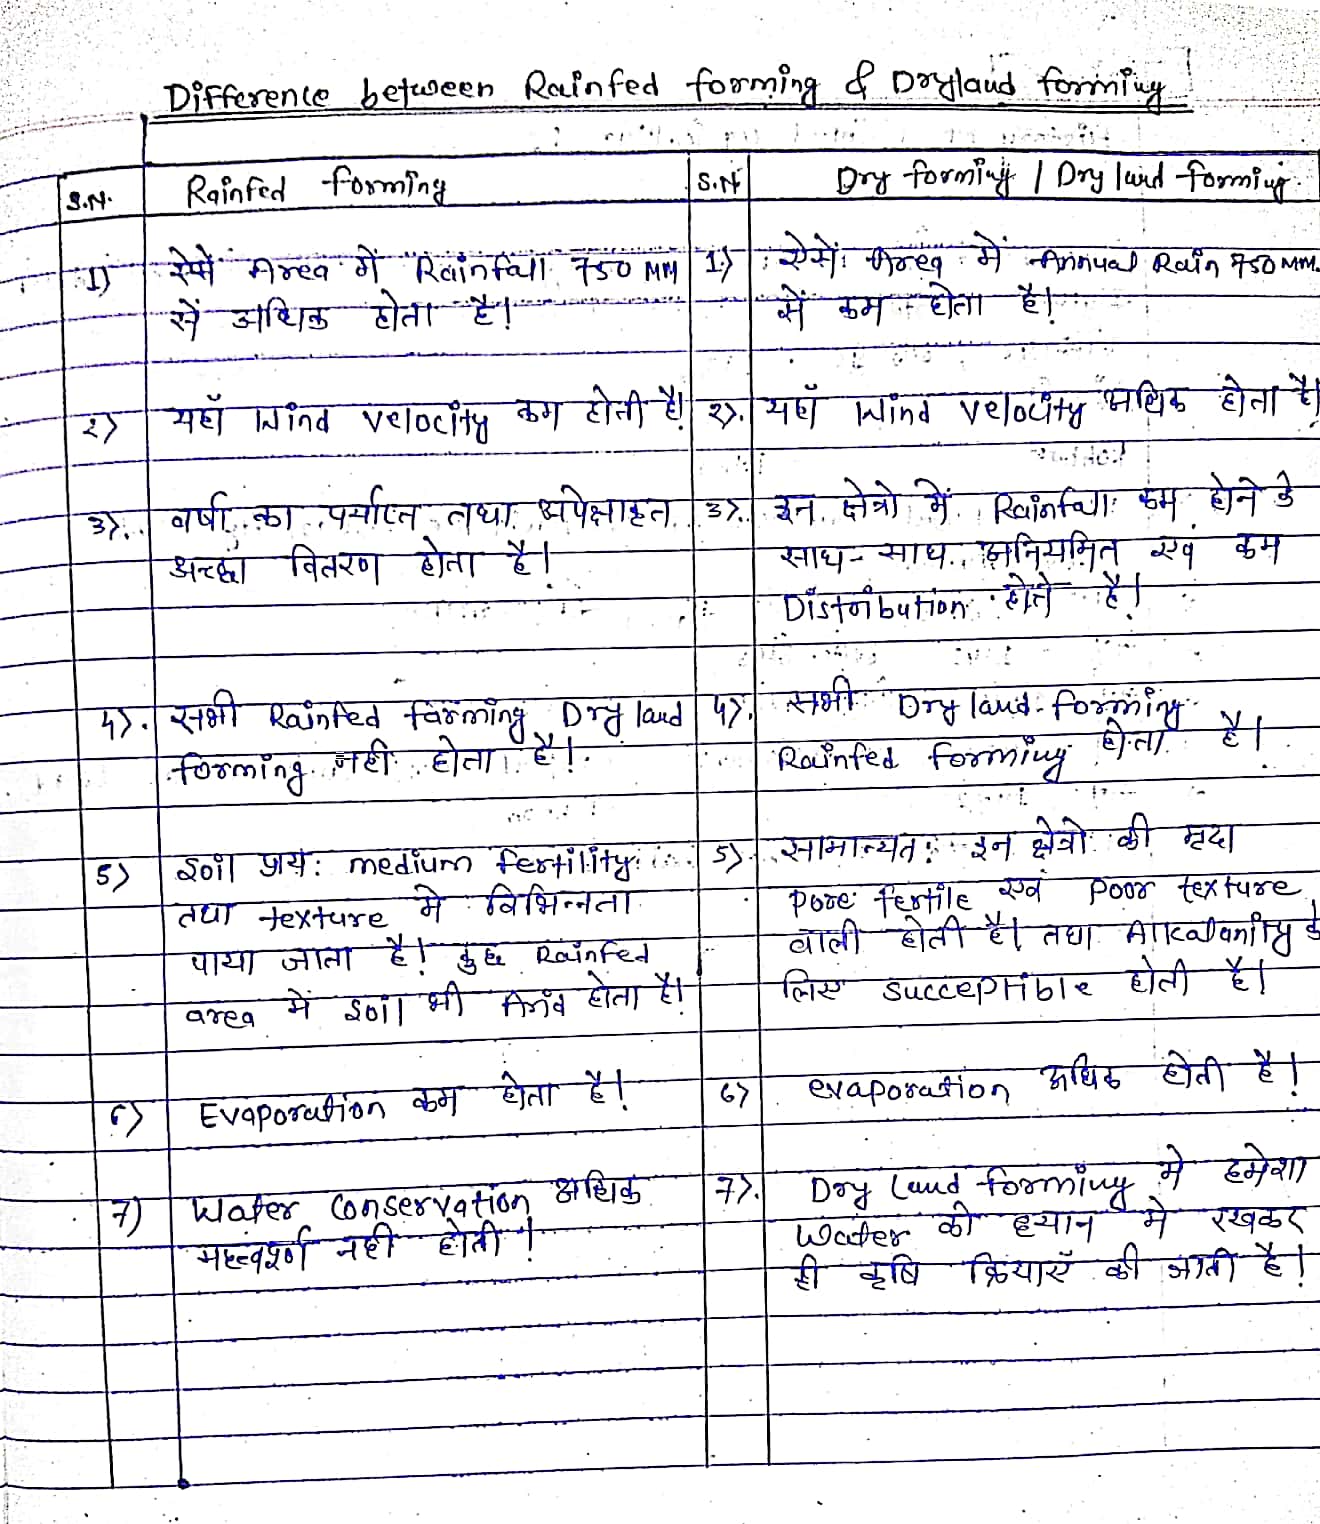 Difference between Rainfed forming & Dryland forming
S.N. Rainfed forming
S.N Dry forming / Dry land forming.
1) ऐसे Area में Rainfall 750 MM
से अधिक होता है।
1) ऐसे Area में Annual Rain 750 MM.
से कम होता है।
२) यहाँ Wind velocity कम होती है।
२). यहाँ Wind velocity अधिक होता है।
3). वर्षा का पर्याप्त तथा अपेक्षाकृत
अच्छा वितरण होता है।
3). इन क्षेत्रो में Rainfall कम होने के
साथ-साथ अनियमित एवं कम
Distribution होते है।
4). सभी Rainfed farming Dry land
forming नही होता है।
4). सभी Dry land forming
Rainfed forming होता है।
5) Soil प्राय: medium fertility
तथा texture मे विभिन्नता
पाया जाता है। कुछ Rainfed
area में Soil भी होता है।
5). सामान्यत: इन क्षेत्रो की मृदा
pore fertile एवं poor texture
वाली होती है। तथा Alkalanity के
लिए succeptible होती है।
6) Evaporation कम होता है।
6) evaporation अधिक होती है।
7) Water Conservation अधिक
महत्वपूर्ण नही होती।
7). Dry Land forming मे हमेशा
Water को ध्यान मे रखकर
ही कृषि क्रियाएँ की जाती है।